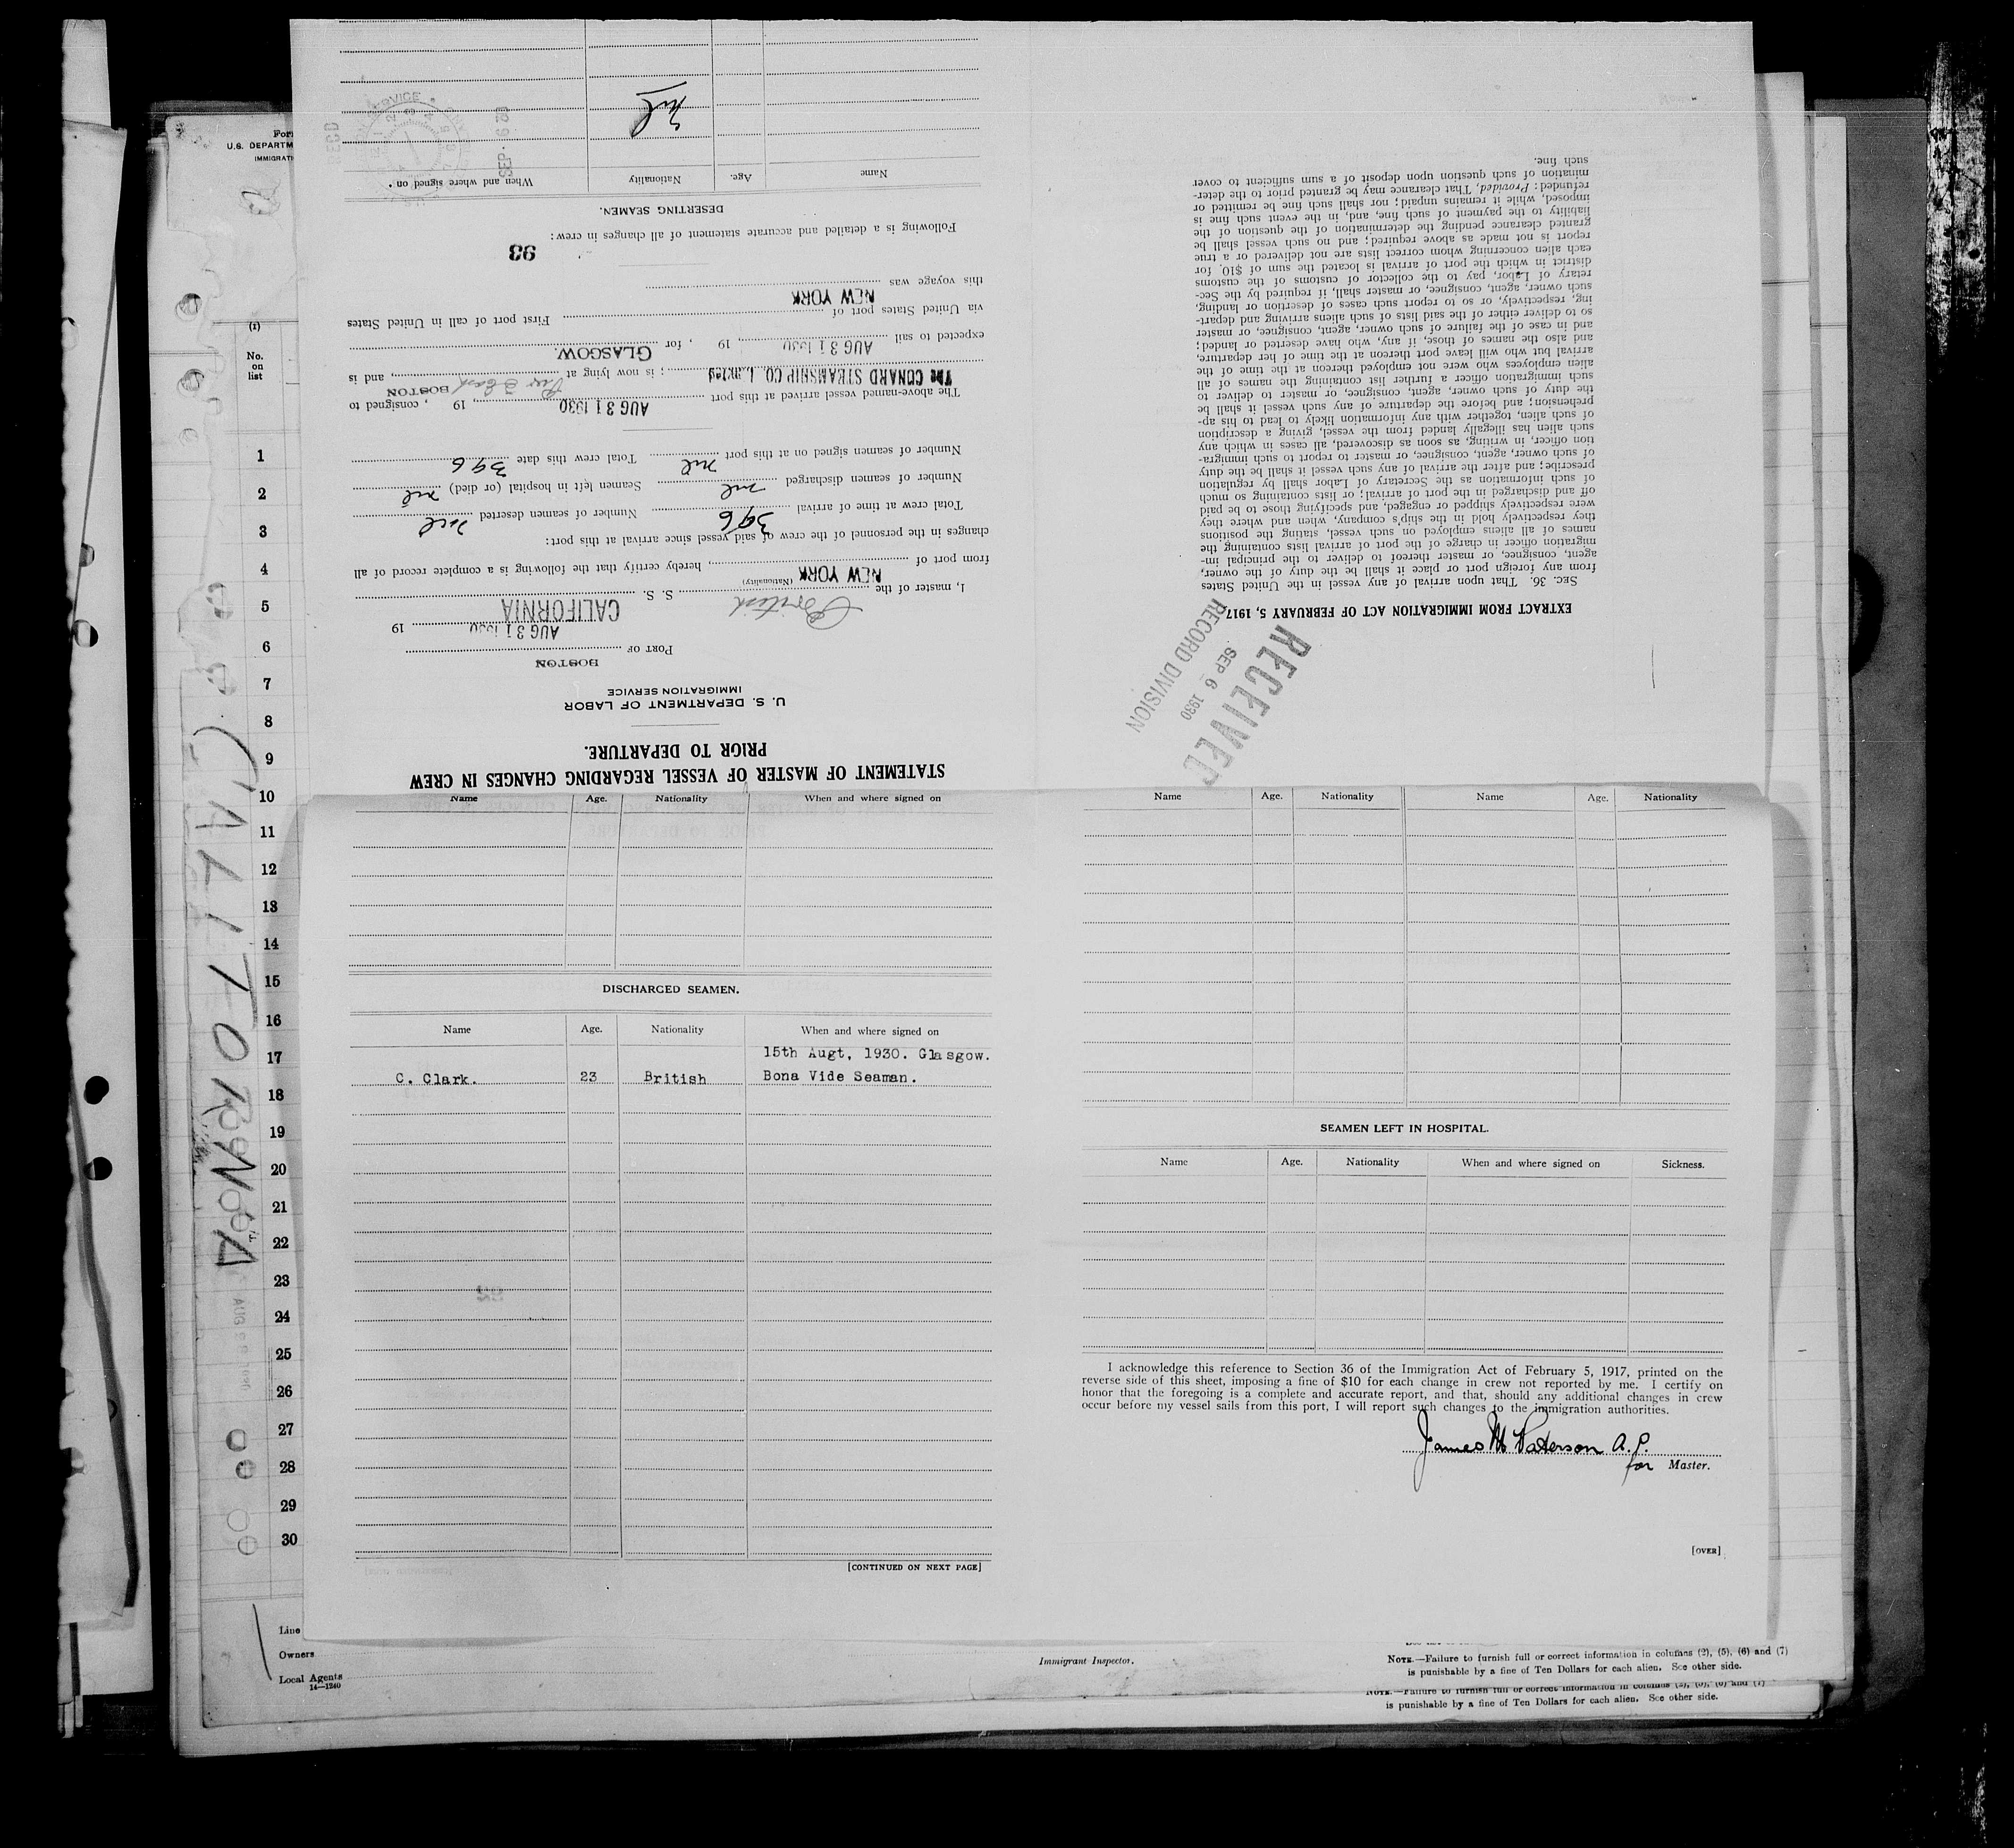 STATEMENT OF MASTER OF VESSEL REGARDING CHANGES IN CREW
PRIOR TO DEPARTURE.
U. S. DEPARTMENT OF LABOR
IMMIGRATION SERVICE
BOSTON
PORT OF
AUG 31 1930 19
CALIFORNIA
I, master of the British S. S.
(Nationality)
from port of NEW YORK, hereby certify that the following is a complete record of all
changes in the personnel of the crew of said vessel since arrival at this port:
Total crew at time of arrival 396 Number of seamen deserted nil
Number of seamen discharged nil Seamen left in hospital (or died) nil
Number of seamen signed on at this port nil Total crew this date 396
The above-named vessel arrived at this port AUG 31 1930, 19 , consigned to
The CUNARD STEAMSHIP CO. Limited; is now lying at BOSTON, and is
expected to sail AUG 31 1930, 19 , for GLASGOW.
via United States port of First port of call in United States
this voyage was NEW YORK
93
Following is a detailed and accurate statement of all changes in crew:
DESERTING SEAMEN.
Name Age. Nationality When and where signed on
Nil
SEP - 6 '29
REC'D
EXTRACT FROM IMMIGRATION ACT OF FEBRUARY 5, 1917
SEC. 36. That upon arrival of any vessel in the United States
from any foreign port or place it shall be the duty of the owner,
agent, consignee, or master thereof to deliver to the principal im-
migration officer in charge of the port of arrival lists containing the
names of all aliens employed on such vessel, stating the positions
they respectively hold in the ship's company, when and where they
were respectively shipped or engaged, and specifying those to be paid
off and discharged in the port of arrival; or lists containing so much
of such information as the Secretary of Labor shall by regulation
prescribe; and after the arrival of any such vessel it shall be the duty
of such owner, agent, consignee, or master to report to such immigra-
tion officer, in writing, as soon as discovered, all cases in which any
such alien has illegally landed from the vessel, giving a description
of such alien, together with any information likely to lead to his ap-
prehension; and before the departure of any such vessel it shall be
the duty of such owner, agent, consignee, or master to deliver to
such immigration officer a further list containing the names of all
alien employees who were not employed thereon at the time of the
arrival but who will leave port thereon at the time of her departure,
and also the names of those, if any, who have deserted or landed;
and in case of the failure of such owner, agent, consignee, or master
so to deliver either of the said lists of such aliens arriving and depart-
ing, respectively, or so to report such cases of desertion or landing,
such owner, agent, consignee, or master shall, if required by the Sec-
retary of Labor, pay to the collector of customs of the customs
district in which the port of arrival is located the sum of $10 for
each alien concerning whom correct lists are not delivered or a true
report is not made as above required; and no such vessel shall be
granted clearance pending the determination of the question of the
liability to the payment of such fine, and, in the event such fine is
imposed, while it remains unpaid; nor shall such fine be remitted or
refunded: Provided, That clearance may be granted prior to the deter-
mination of such question upon deposit of a sum sufficient to cover
such fine.
RECEIVED
SEP 6 1930
RECORD DIVISION
Name Age. Nationality When and where signed on
DISCHARGED SEAMEN.
Name Age. Nationality When and where signed on
15th Augt, 1930. Glasgow.
C. Clark. 23 British Bona Vide Seaman.
[CONTINUED ON NEXT PAGE]
Name Age. Nationality Name Age. Nationality
SEAMEN LEFT IN HOSPITAL.
Name Age. Nationality When and where signed on Sickness.
I acknowledge this reference to Section 36 of the Immigration Act of February 5, 1917, printed on the
reverse side of this sheet, imposing a fine of $10 for each change in crew not reported by me. I certify on
honor that the foregoing is a complete and accurate report, and that, should any additional changes in crew
occur before my vessel sails from this port, I will report such changes to the immigration authorities.
James M Paterson A.P.
for Master.
[OVER]
U.S. DEPARTM
IMMIGRATI
(1)
No.
on
list
1
2
3
4
5
6
7
8
9
10
11
12
13
14
15
16
17
18
19
20
21
22
23
24
25
26
27
28
29
30
CALIFORNIA
Line
Owners
Local Agents
14—1240
Immigrant Inspector.
NOTE.—Failure to furnish full or correct information in columns (2), (5), (6) and (7)
is punishable by a fine of Ten Dollars for each alien. See other side.
NOTE.—Failure to furnish full or correct information in columns (2), (5), (6) and (7)
is punishable by a fine of Ten Dollars for each alien. See other side.